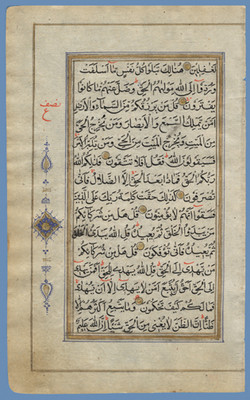 لغفلين هنالك تبلوا كل نفس ما اسلفت
وردوا الى الله موليهم الحق وضل عنهم ما كانوا
يفترون قل من يرزقكم من السماء والارض
امن يملك السمع والابصار ومن يخرج الحي
من الميت ويخرج الميت من الحي ومن يدبر الامر
فسيقولون الله فقل افلا تتقون فذلكم الله
ربكم الحق فماذا بعد الحق الا الضلال فانى
تصرفون كذلك حقت كلمة ربك على الذين
فسقوا انهم لا يؤمنون قل هل من شركائكم
من يبدؤا الخلق ثم يعيده قل الله يبدؤا الخلق
ثم يعيده فانى تؤفكون قل هل من شركائكم
من يهدي الى الحق قل الله يهدي للحق افمن يهدي
الى الحق احق ان يتبع امن لا يهدي الا ان يهدى
فما لكم كيف تحكمون وما يتبع اكثرهم الا
ظنا ان الظن لا يغني من الحق شيئا ان الله عليم
نصف
ع